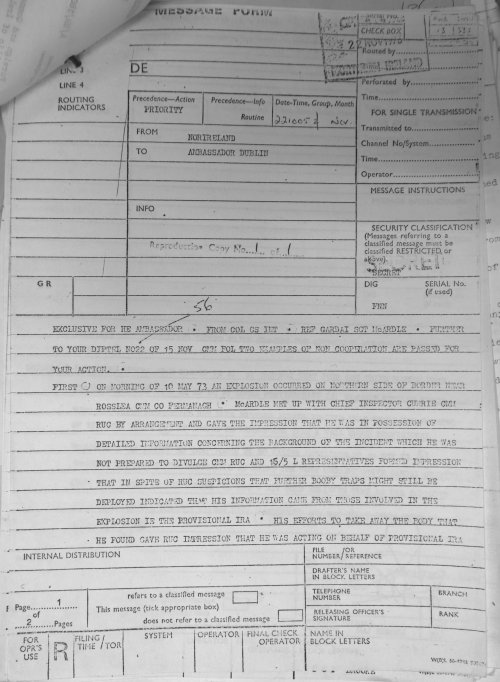 MESSAGE FORM
LINE 3
DE
LINE 4
ROUTING
INDICATORS
Precedence—Action
PRIORITY
Precedence—Info
Routine
Date-Time, Group, Month
221005 Z Nov
FROM
NORIRELAND
TO
AMBASSADOR DUBLIN
INFO
Reproduction Copy No...1.. of.1
CHECK BOX
NOV
NORTHERN IRELAND
Routed by
Perforated by
Time
FOR SINGLE TRANSMISSION
Transmitted to
Channel No/System
Time
Operator
MESSAGE INSTRUCTIONS
SECURITY CLASSIFICATION
(Messages referring to a
classified message must be
classified RESTRICTED, or
above).
SECRET
GR
DIG
SERIAL No.
(if used)
FNN
56
EXCLUSIVE FOR HE AMBASSADOR • FROM COL GS INT • REF GARDAI SGT McARDLE • FURTHER
TO YOUR DIPTEL NO22 OF 15 NOV CMM FOL TWO EXAMPLES OF NON COOPERATION ARE PASSED FOR
YOUR ACTION.
FIRST ON MORNING OF 18 MAY 73 AN EXPLOSION OCCURRED ON NORTHERN SIDE OF BORDER NEAR
ROSSLEA CMM CO FERMANAGH • McARDLE MET UP WITH CHIEF INSPECTOR CURRIE CMM
RUC BY ARRANGEMENT AND GAVE THE IMPRESSION THAT HE WAS IN POSSESSION OF
DETAILED INFORMATION CONCERNING THE BACKGROUND OF THE INCIDENT WHICH HE WAS
NOT PREPARED TO DIVULGE CMM RUC AND 16/5 L REPRESENTATIVES FORMED IMPRESSION
THAT IN SPITE OF RUC SUSPICIONS THAT FURTHER BOOBY TRAPS MIGHT STILL BE
DEPLOYED INDICATED THAT HIS INFORMATION CAME FROM THOSE INVOLVED IN THE
EXPLOSION IE THE PROVISIONAL IRA • HIS EFFORTS TO TAKE AWAY THE BODY THAT
HE FOUND GAVE RUC IMPRESSION THAT HE WAS ACTING ON BEHALF OF PROVISIONAL IRA
INTERNAL DISTRIBUTION
FILE /OR
NUMBER/REFERENCE
DRAFTER'S NAME
IN BLOCK LETTERS
Page 1
of
2 Pages
refers to a classified message
This message (tick appropriate box)
does not refer to a classified message
TELEPHONE
NUMBER
BRANCH
RELEASING OFFICER'S
SIGNATURE
RANK
FOR
OPR'S
USE
R
FILING/
TIME /TOR
SYSTEM
OPERATOR
FINAL CHECK
OPERATOR
NAME IN
BLOCK LETTERS